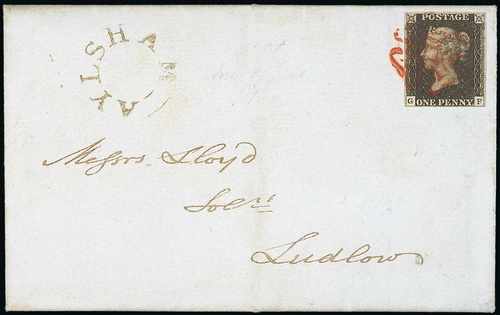 AYLSHAM
POSTAGE
G P
ONE PENNY
Messrs. Lloyd
Solrs
Ludlow